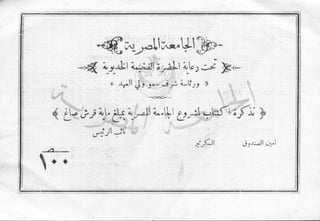 الجامعة المصرية
تحت رعاية الحضرة الفخيمة الخديوية
ورئاسة شرف سمو ولي العهد
تذكرة اكتتاب لمشروع الجامعة المصرية بمبلغ ماية قرش صاغ
امين الصندوق السكرتير نائب الرئيس
١٠٠